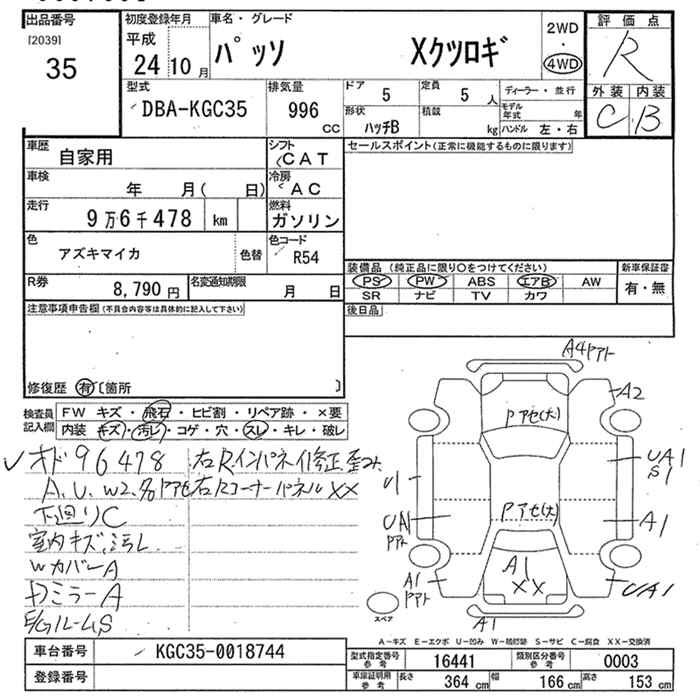 出品番号
[2039]
35
初度登録年月
平成
24 10 月
車名・グレード
パッソ Xクツロギ
2WD
・
4WD
評価点
R
外装 内装
C B
型式
DBA-KGC35
排気量
996 CC
ドア 5
定員 5 人
形状 ハッチB
積載 kg
ディーラー・並行
モデル年式 年
ハンドル 左・右
車歴 自家用
シフト CAT
車検 年 月( 日)
冷房 AC
走行 9万6千478 km
燃料 ガソリン
色 アズキマイカ 色替
色コード R54
R券 8,790 円
名変通知期限 月 日
セールスポイント(正常に機能するものに限ります)
装備品 (純正品に限り〇をつけてください)
PS PW ABS エアB AW
SR ナビ TV カワ
新車保証書
有・無
後日品
注意事項申告欄 (不具合内容等は具体的に記入して下さい)
修復歴 有 [箇所 ]
検査員記入欄
FW キズ・飛石・ヒビ割・リペア跡・×要
内装 キズ・汚レ・コゲ・穴・スレ・キレ・破レ
オド96478
右R.インパネイ修正歪み
A.U.W2.多 アセ
右Rコーナーパネル XX
下廻りC
室内キズ、汚レ
WカバーA
ドミラーA
A4アト
A2
Pアセ(大)
UA1
S1
U1
Pアセ(大)
A1
UA1
アト
A1
XX
A1
アト
UA1
A1
スペア
A-キズ E-エクボ U-凹み W-補修跡 S-サビ C-腐食 XX-交換済
車台番号 KGC35-0018744
登録番号
型式指定番号 参考 16441
類別区分番号 参考 0003
車庫証明用 参考 長さ 364 cm 幅 166 cm 高さ 153 cm